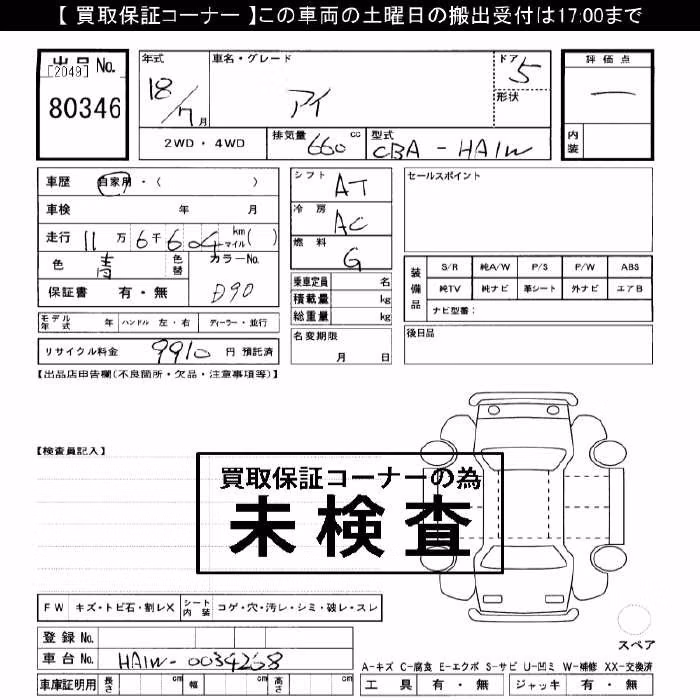 【 買取保証コーナー 】この車両の土曜日の搬出受付は17:00まで
出品 No.
[2049]
80346
年式
18/7月
車名・グレード
アイ
ドア
5
形状
評価点
内装
2WD・4WD
排気量 660 cc
型式 CBA-HA1W
車歴 自家用・( )
車検 年 月
走行 11万6千604 km マイル( )
色 青 色替 カラーNo.
保証書 有・無 D90
モデル年式 年 ハンドル 左・右 ディーラー・並行
リサイクル料金 9910 円 預託済
シフト AT
冷房 AC
燃料 G
乗車定員 名
積載量 kg
総重量 kg
名変期限
月 日
セールスポイント
装備品
S/R 純A/W P/S P/W ABS
純TV 純ナビ 革シート 外ナビ エアB
ナビ型番:
後日品
【出品店申告欄(不良箇所・欠品・注意事項等)】
【検査員記入】
買取保証コーナーの為
未検査
FW キズ・トビ石・割レX シート内装 コゲ・穴・汚レ・シミ・破レ・スレ
登録No.
車台No. HA1W-0034268
車庫証明用 長さ cm 幅 cm 高さ cm
スペア
A-キズ C-腐食 E-エクボ S-サビ U-凹ミ W-補修 XX-交換済
工具 有・無 ジャッキ 有・無